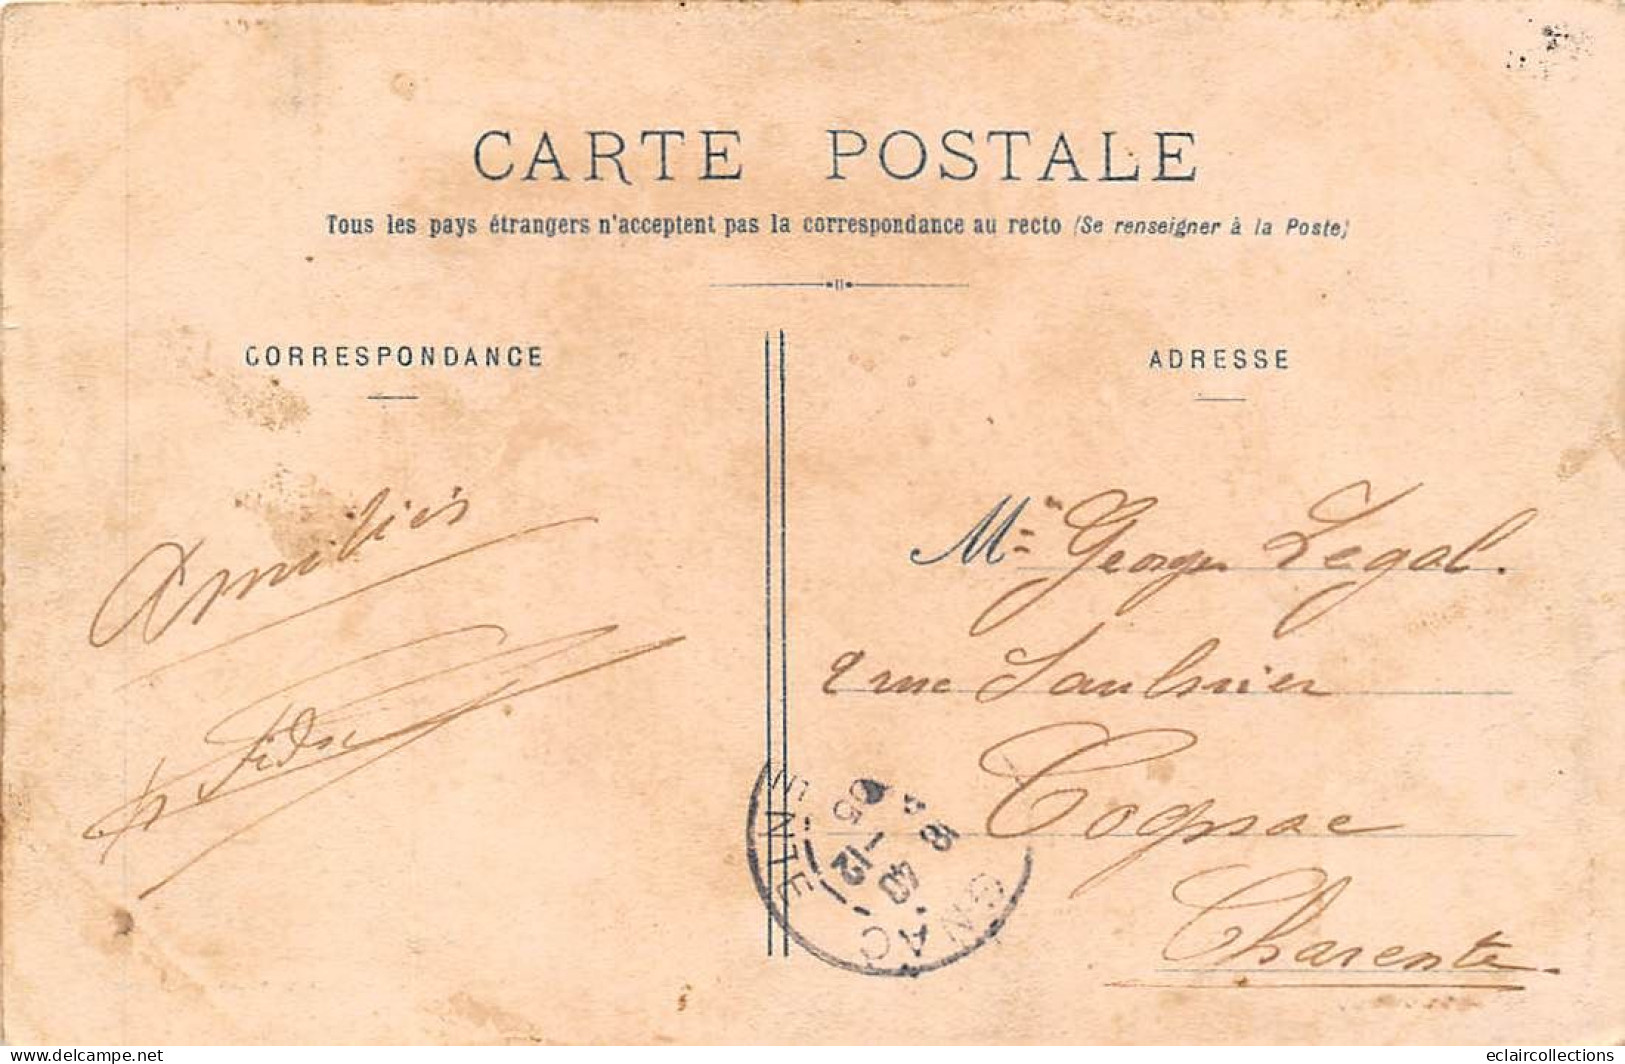 CARTE POSTALE
Tous les pays étrangers n'acceptent pas la correspondance au recto (Se renseigner à la Poste)
CORRESPONDANCE
ADRESSE
Amitiés
Mr Georges Legal.
2 rue Saulnier
Cognac
Charente
GNAC
ENTE
18 40
-12
05
delcampe.net
eclaircollections